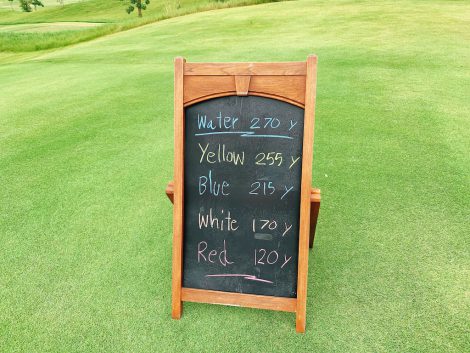 Water 270 y
Yellow 255 y
Blue 215 y
White 170 y
Red 120 y